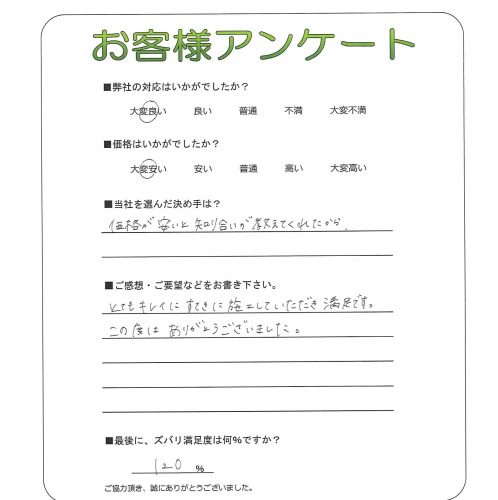 お客様アンケート
■弊社の対応はいかがでしたか？
大変良い 良い 普通 不満 大変不満
■価格はいかがでしたか？
大変安い 安い 普通 高い 大変高い
■当社を選んだ決め手は？
価格が安いと知り合いが教えてくれたから。
■ご感想・ご要望などをお書き下さい。
とてもキレイにすてきに施工していただき満足です。
この度はありがとうございました。
■最後に、ズバリ満足度は何%ですか？
120 %
ご協力頂き、誠にありがとうございました。